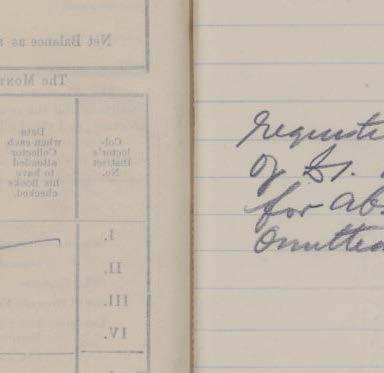 Net Balance as
The MONT
Date
when each
Collector
attended
to have
his Books
checked.
Col-
lector's
District
No.
I.
II.
III.
IV.
of
for
Omitted